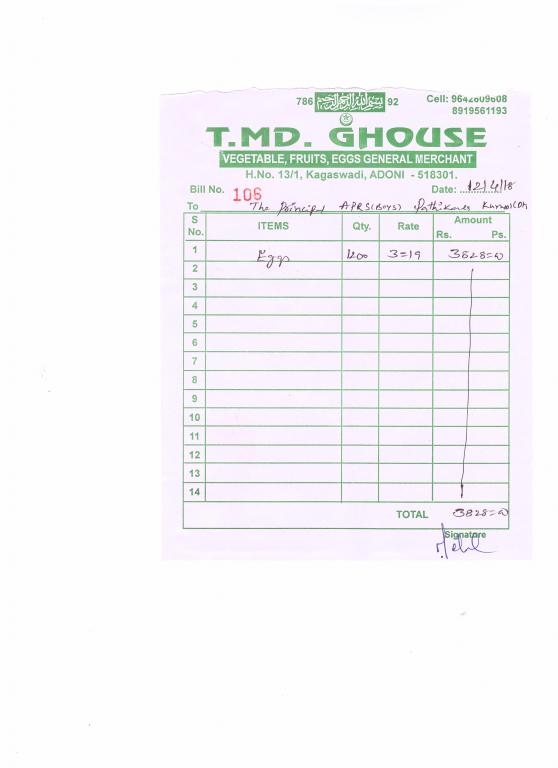 786 بسم الله الرحمن الرحيم 92 Cell: 9642609608
8919561193
T.MD. GHOUSE
VEGETABLE, FRUITS, EGGS GENERAL MERCHANT
H.No. 13/1, Kagaswadi, ADONI - 518301.
Bill No. 106 Date: 12/4/18
To The Principal APRS(BOYS)
S No. ITEMS Qty. Rate Amount Rs. Ps.
1 Eggs 1200 3=19 3828=00
2
3
4
5
6
7
8
9
10
11
12
13
14
TOTAL 3828=00
Signature